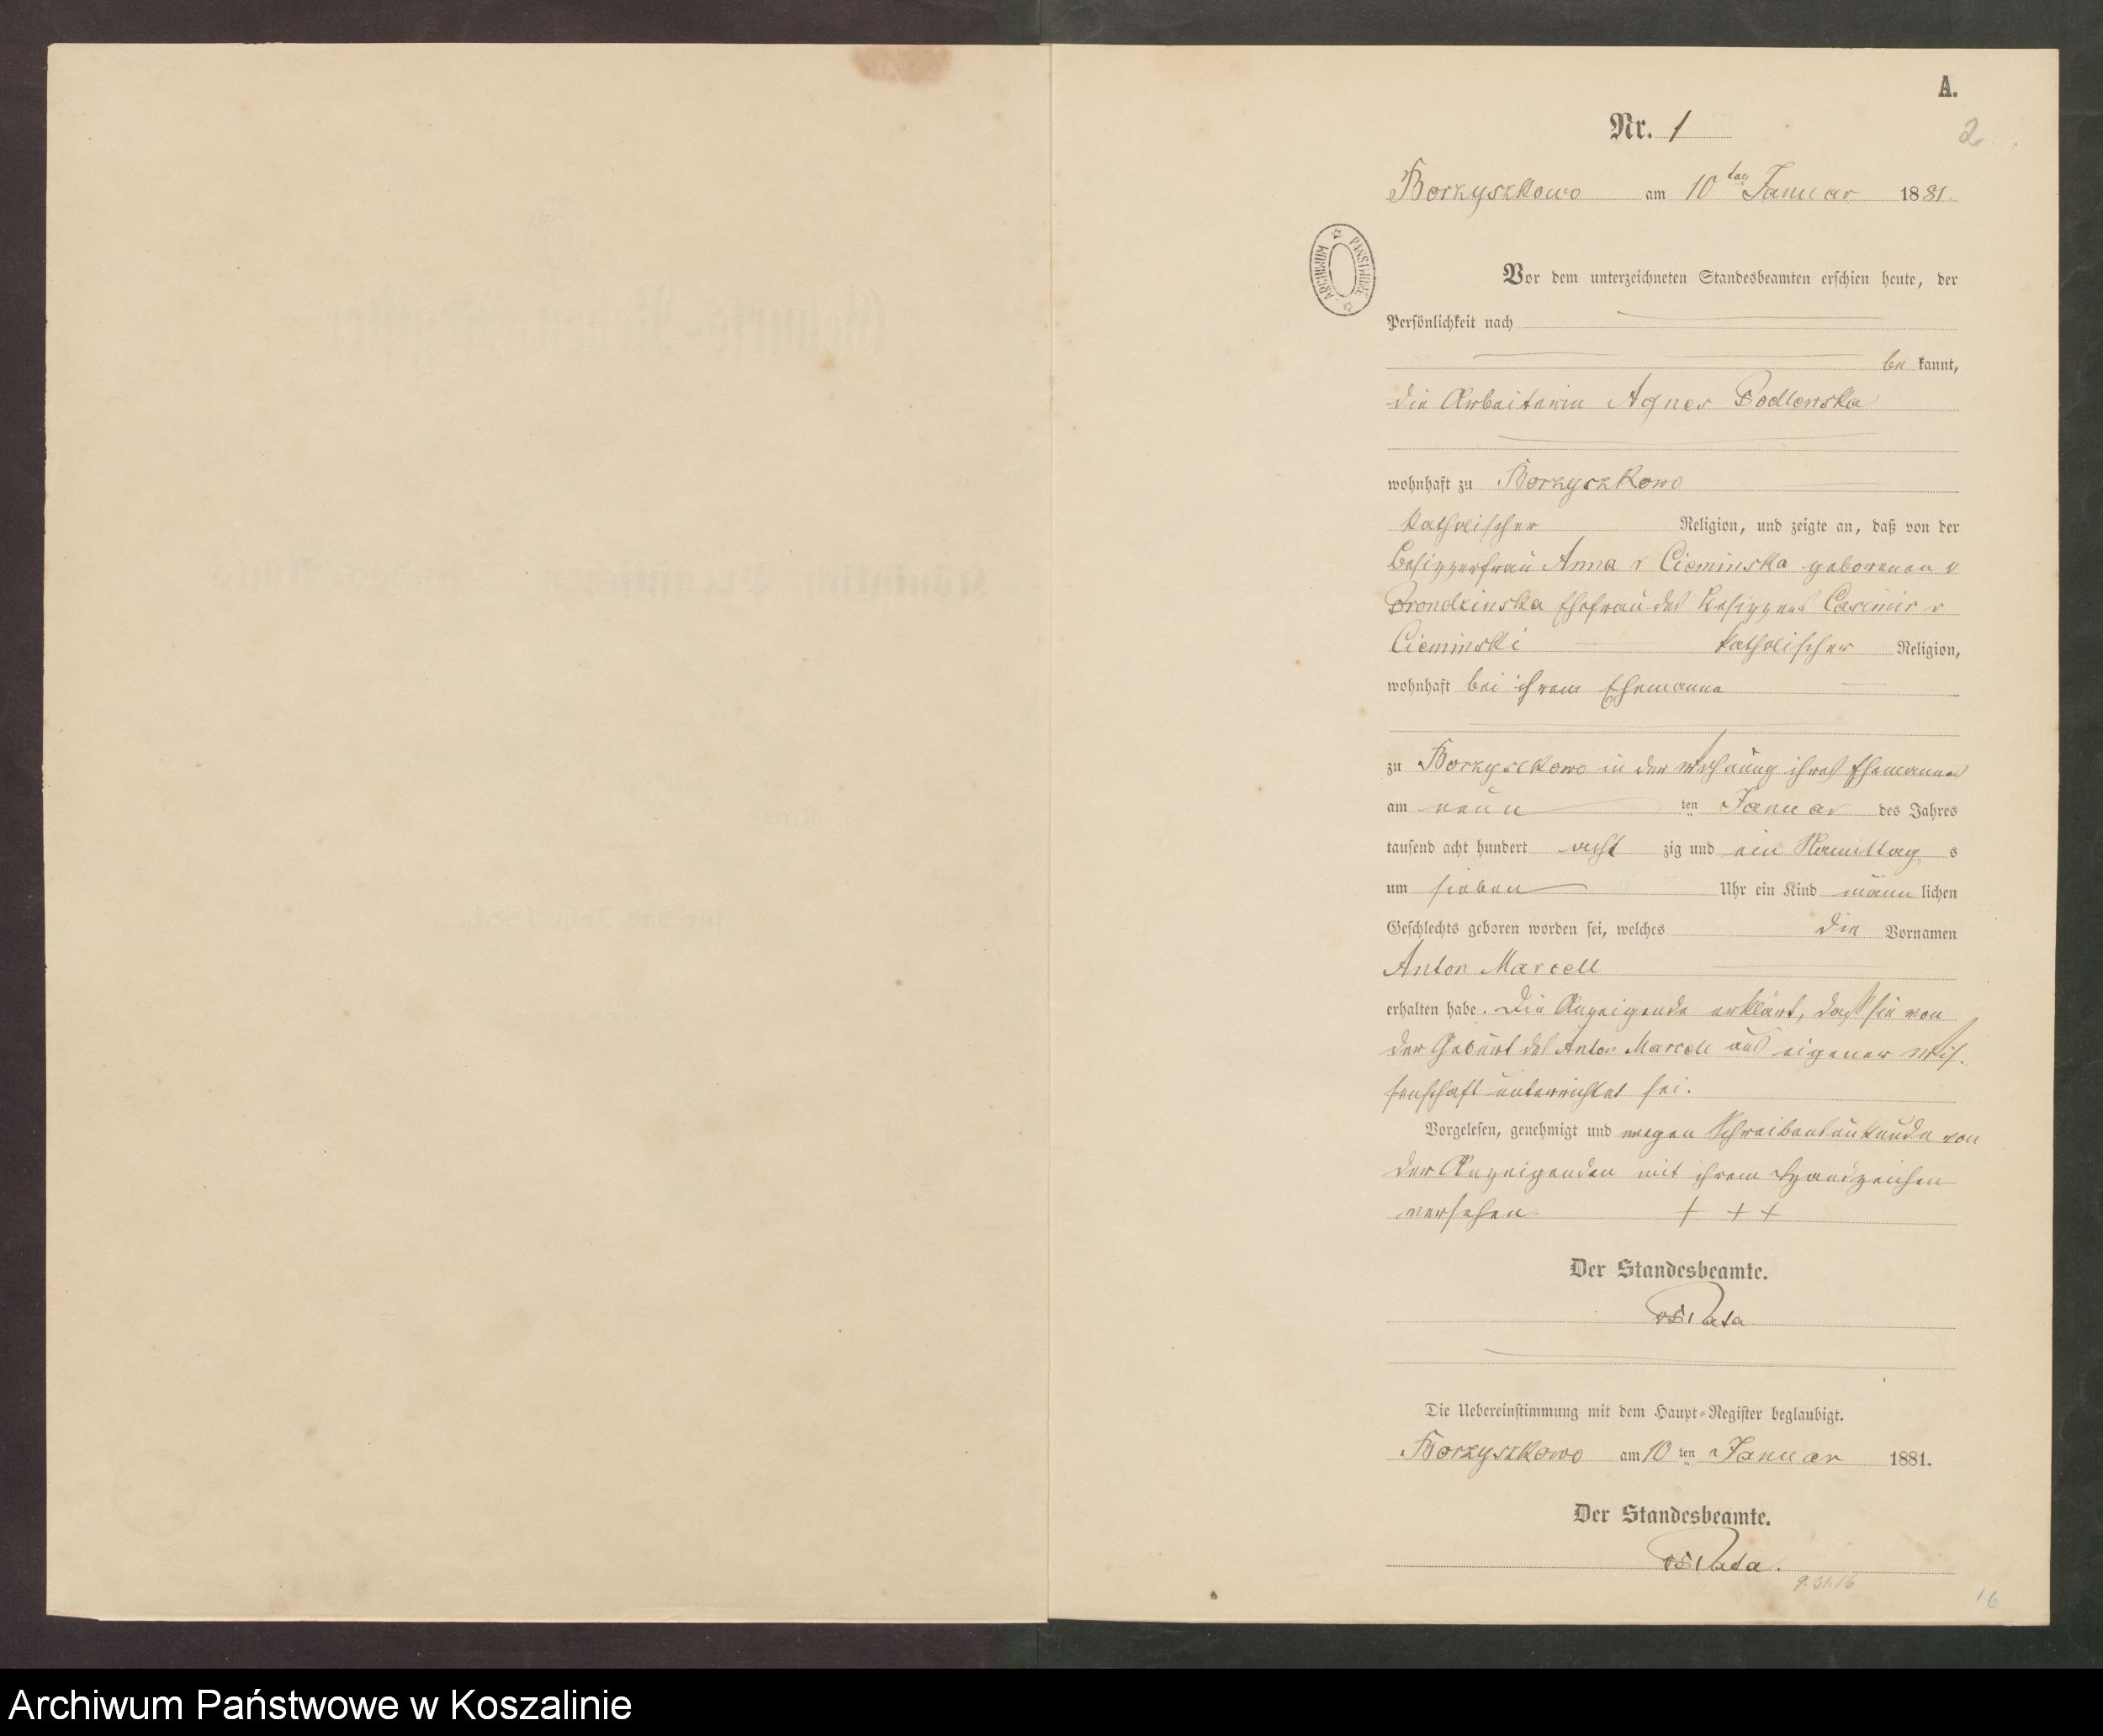 A.
Nr. 1
2
Borzyszkowo am 10ten Januar 1881.
ARCHIWUM PAŃSTWOWE
Vor dem unterzeichneten Standesbeamten erschien heute, der
Persönlichkeit nach
be kannt,
die Arbeiterin Agnes Podlewska
wohnhaft zu Borzyszkowo
katholischer Religion, und zeigte an, daß von der
Besitzerfrau Anna v Cieminska geborenen v
Brondzinska Ehefrau des Besitzers Casimir v
Cieminski katholischer Religion,
wohnhaft bei ihrem Ehemanne
zu Borzyszkowo in der Wohnung ihres Ehemannes
am neun ten Januar des Jahres
tausend acht hundert acht zig und ein Namittag s
um sieben Uhr ein Kind männ lichen
Geschlechts geboren worden sei, welches die Vornamen
Anton Marcell
erhalten habe. Die Anzeigende erklärt, daß sie von
der Geburt des Anton Marcell aus eigener Wis-
senschaft unterrichtet sei.
Vorgelesen, genehmigt und wegen Schreibensunkunde von
der Anzeigenden mit ihrem Handzeichen
versehen + + +
Der Standesbeamte.
Die Uebereinstimmung mit dem Haupt=Register beglaubigt.
Borzyszkowo am 10 ten Januar 1881.
Der Standesbeamte.
16
Archiwum Państwowe w Koszalinie